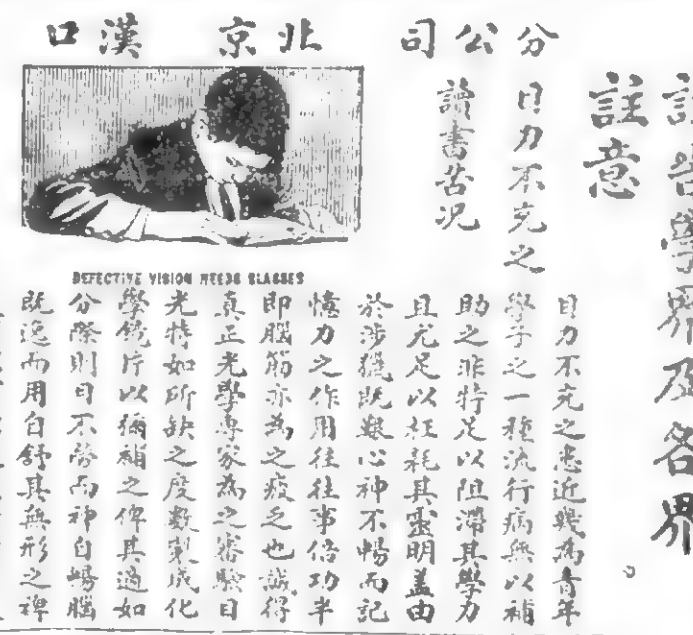 學界及各界
註意
目力不充之
讀書苦况
分公司 北京 漢口
DEFECTIVE VISION NEEDS GLASSES
目力不充之患近幾為青年
學子之一種流行病無以補
助之非特足以阻滯其學力
且尤足以枉耗其靈明蓋由
於涉獵既艱心神不暢而記
憶力之作用往往事倍功半
即腦筋亦為之疲乏也誠得
真正光學專家為之審驗目
光特如所缺之度數製成化
學鏡片以彌補之俾其適如
分際則目不勞而神自暢腦
既逸而用自舒其無形之裨